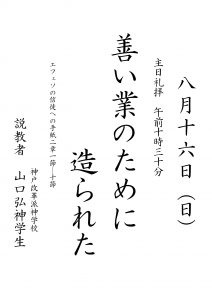 八月十六日（日）
主日礼拝　午前十時三十分
善い業のために
造られた
エフェソの信徒への手紙二章一節～十節
神戸改革派神学校
説教者　山口弘神学生